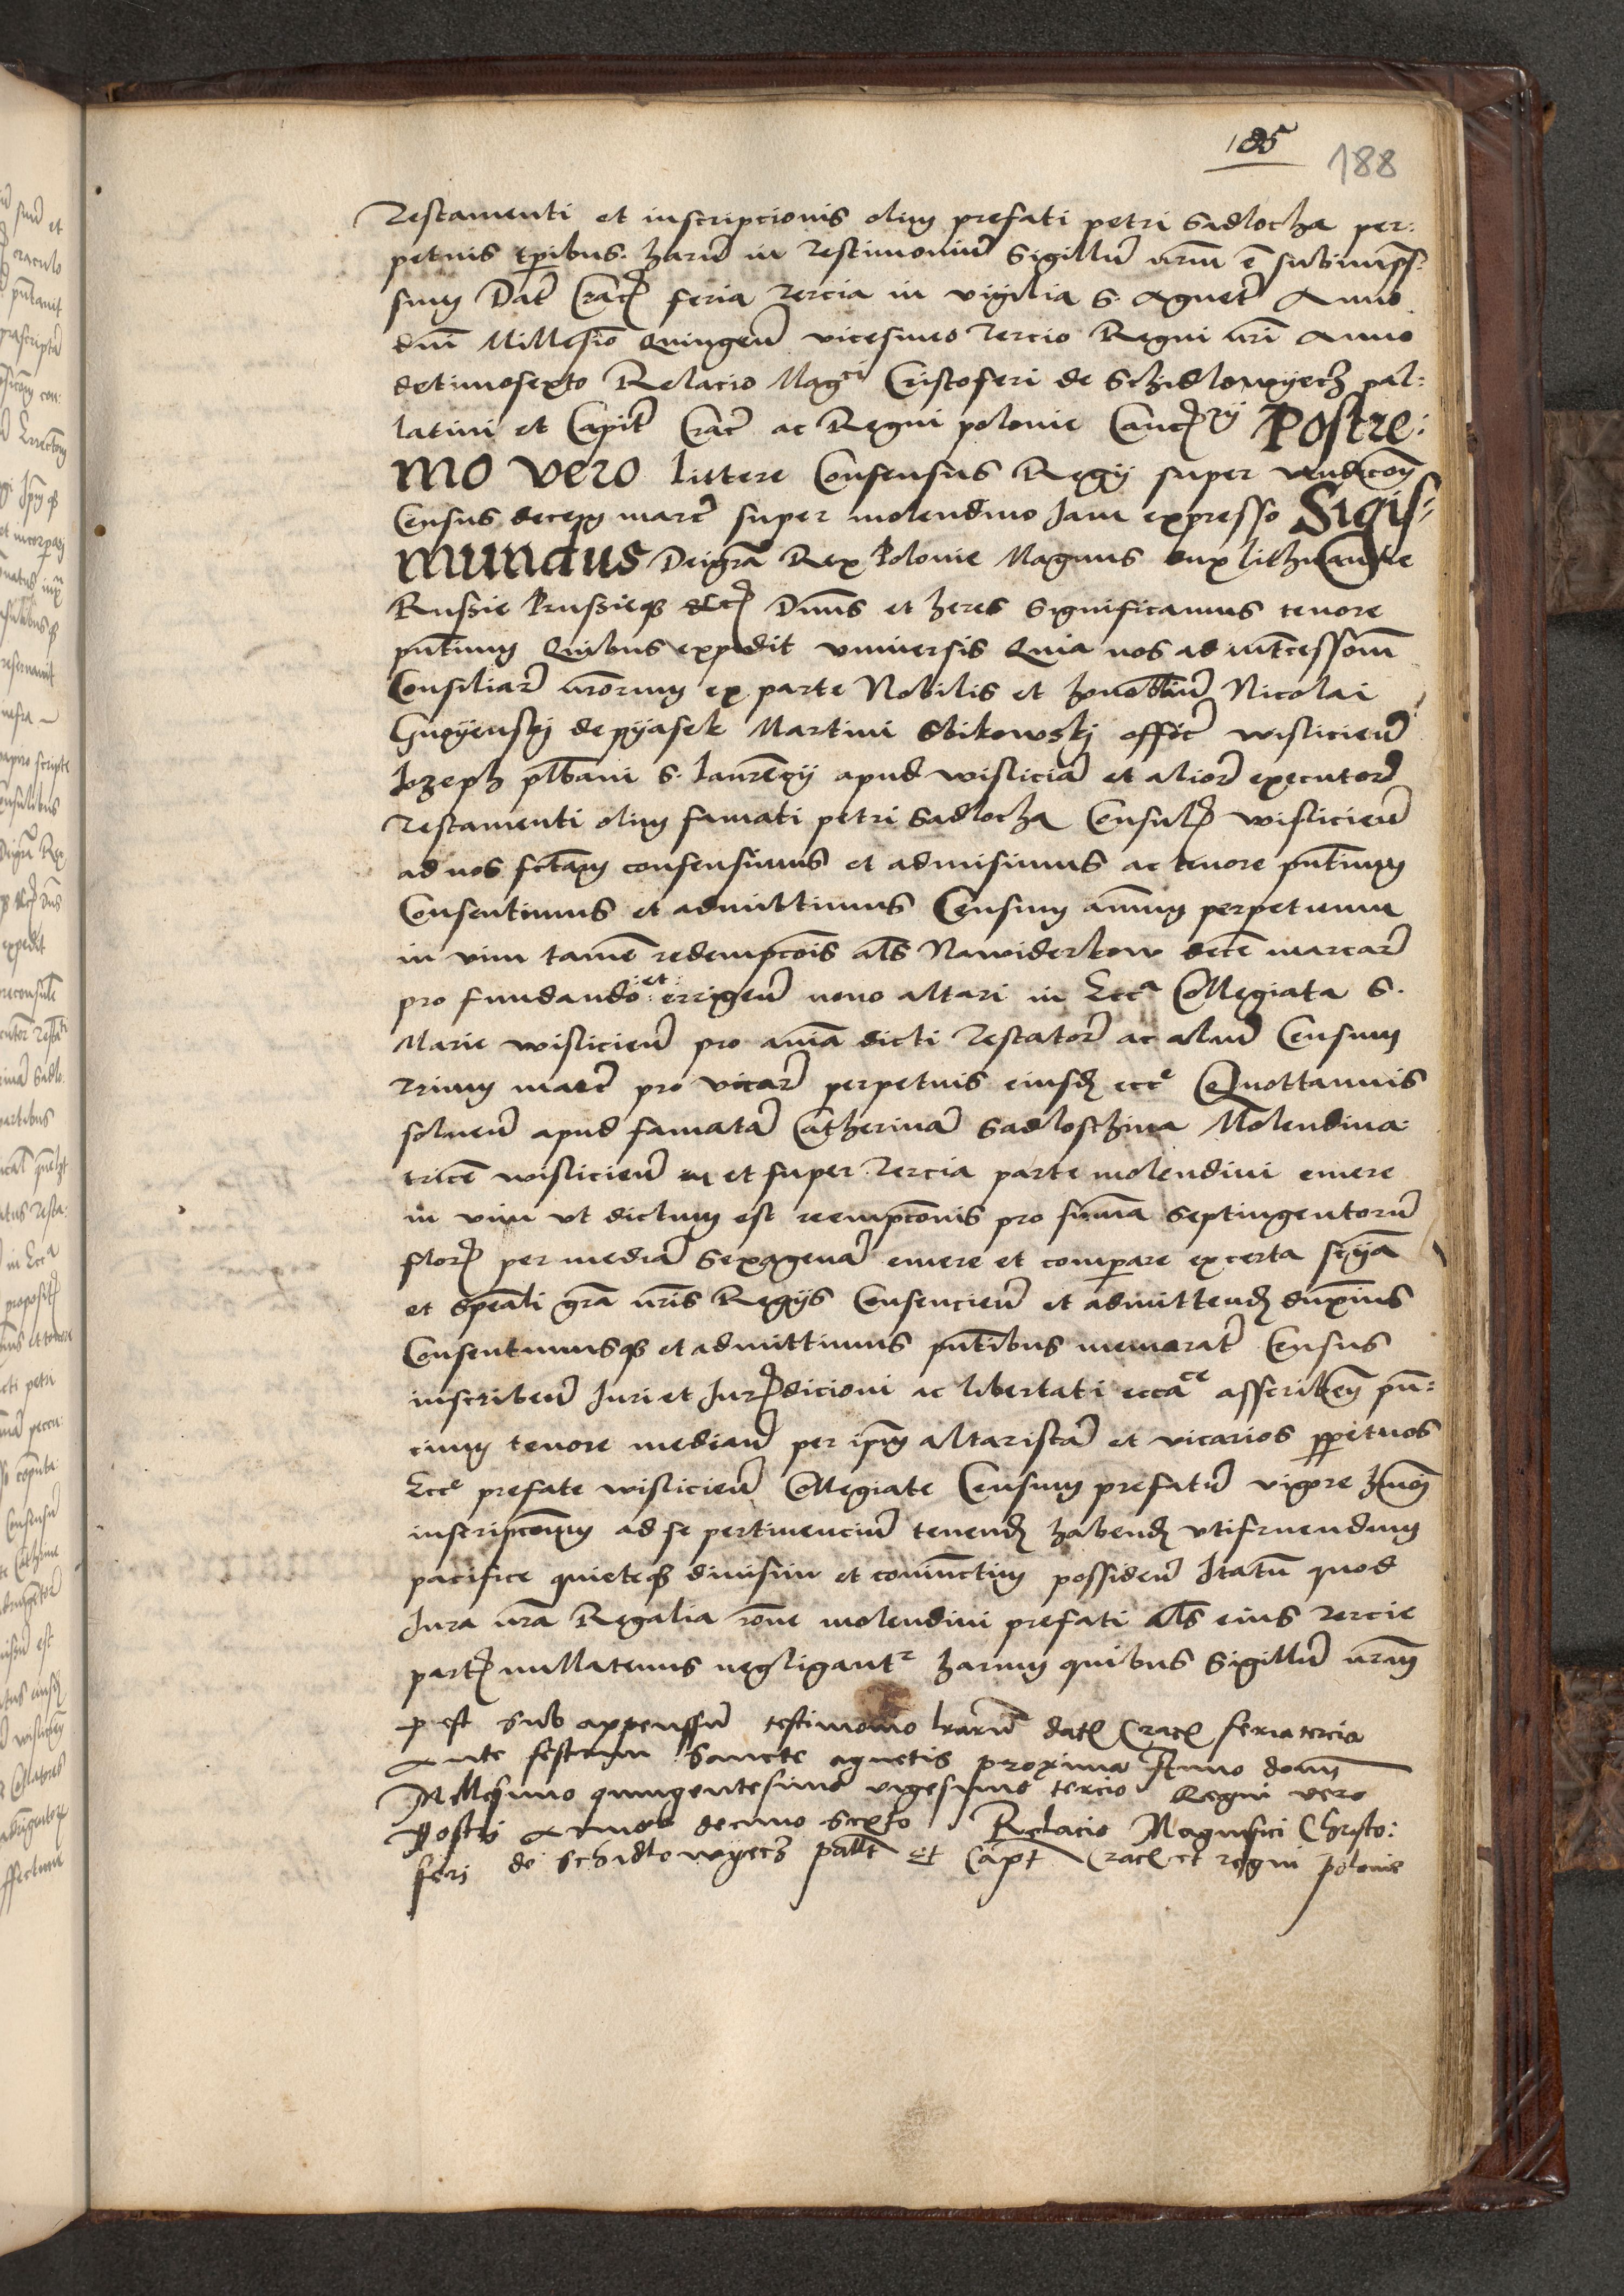 185
188
Testamenti et inscripcionis olim prefati petri Sadlocha per:
petuis tꝑibus. harū in Testimoniū Sigillū nr̄m ē subimpͣs:
sum Dat̄ Crac̄ feria Tercia in vigilia S. Agnet̄ Anno
dnī Millesīo Quingen̄ vicesimo Tercio Regni nr̄i Anno
decimosexto Relacio Mag^ci Cristoferi de Schidlowyecz pal:
latini et Capit̄ Crac̄ ac Regni polonie Canc^rij Postre:
mo vero littere Consensus Regij super vendicōn̄
Census decem marc̄ super molendino Jam expresso Sigis/
mundus Deigrā Rex Polonie Magnus dux lithuanie
Russie Prussieqȝ etc̄ Dn̄us et heres Significamus tenore
pn̄tium Quibus expedit vniuersis Quia nos ad intcessionē
Consiliar̄ nr̄orum ex parte Nobilis et honobliū Nicolai
Gnoyenskj de pyasek Martini Sbikowskj offic̄ wislicien̄
Jozeph plb̄ani S. laurēcij apud wisliciā et alior̄ executor̄
Testamenti olim famati petri Sadlocha Consul̄ wislicien̄
ad nos fctām consensimus et admisimus ac tenore pn̄tium
Consentimus et admittimus Censum annūm perpetuum
in vim tamē redempcōis als̄ Nawiderkow decē marcar̄
pro fundando et errigen̄ nouo altari in Ecc^a Collegiata S.
Marie wislicien̄ pro aīa dicti Testator̄ ac aliud Censum
Trium marc̄ pro vicar̄ perpetuis eiusd̄ ecc^e Quottannis
soluen̄ apud famatā Catherinā Sadloschina Molendina:
tricē wislicien̄ et super Tercia parte molendini emere
in vim vt dictum est reempcōnis pro summa Septingentorū
flor̄ per mediā Sexagenā emere et comꝑare ex certa scīa
et speāli grā nr̄is Regijs Consencien̄ et admittend̄ duximus
Consentimusqȝ et admittimus pn̄tibus memorat̄ Census
inscriben̄ Juri et Jur̄dicioni ac libertati eccā^ce asscriben̄ pn̄=
cium tenore median̄ per ipm̄ altaristā et vicarios ꝑpetuos
Ecc^e prefate wislicien̄ Collegiate Censum prefatū vigore hmōi
inscripcōnum ad se pertinenciū tenend̄ habend̄ vtifruendum
pacifice quieteqȝ diuisim et coniunctim possiden̄ Itatn̄ quod
Jura nr̄a Regalia rōne molendini prefati als̄ eius Tercie
part̄ nullatenus negligant^r harum quibus Sigillū nr̄m
p est sub appenssum testimonio lr̄arū datꝭ Cracꝭ feria tercia
Ante festum Sancte agnetis proxima Anno domī
Millesimo quingentesimo vigesimo tercio Regni vero
Nostri Anno decimo sexto Relacio Magnifici Christo:
feri de Schidlowyecz pallt̄ Et Capt̄ Cracꝭ et regni polonie